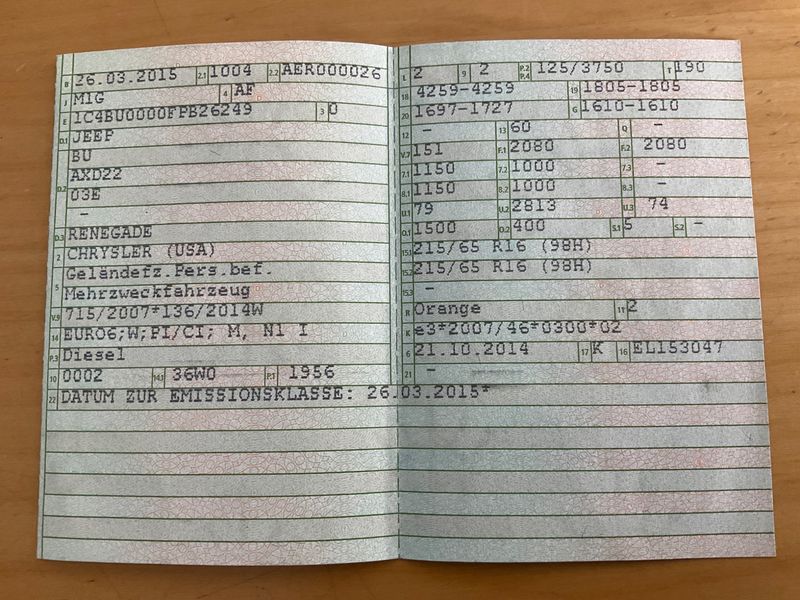 B 26.03.2015 2.1 1004 2.2 AER000026
J M1G 4 AF
E 1C4BU0000FPB26249 3 0
D.1 JEEP
BU
D.2 AXD22
03E
-
D.3 RENEGADE
2 CHRYSLER (USA)
5 Geländefz.Pers.bef.
Mehrzweckfahrzeug
V.9 715/2007*136/2014W
14 EURO6;W;PI/CI; M, N1 I
P.3 Diesel
10 0002 14.1 36W0 P.1 1956
22 DATUM ZUR EMISSIONSKLASSE: 26.03.2015*
L 2 9 2 P.2 P.4 125/3750 T 190
18 4259-4259 19 1805-1805
20 1697-1727 G 1610-1610
12 - 13 60 Q -
V.7 151 F.1 2080 F.2 2080
7.1 1150 7.2 1000 7.3 -
8.1 1150 8.2 1000 8.3 -
U.1 79 U.2 2813 U.3 74
O.1 1500 O.2 400 S.1 5 S.2 -
15.1 215/65 R16 (98H)
15.2 215/65 R16 (98H)
15.3 -
R Orange 11 2
K e3*2007/46*0300*02
6 21.10.2014 17 K 16 EL153047
21 -